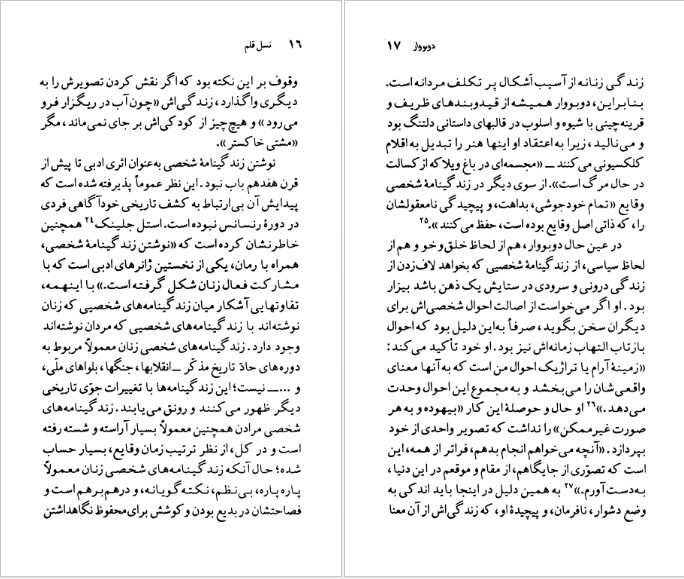 ۱۶ نسل قلم
وقوف بر این نکته بود که اگر نقش کردن تصویرش را به
دیگری واگذارد، زندگی‌اش «چون آب در ریگزار فرو
می‌رود» و هیچ‌چیز از کودکی‌اش بر جای نمی‌ماند، مگر
«مشتی خاکستر».
نوشتن زندگینامهٔ شخصی به‌عنوان اثری ادبی تا پیش از
قرن هفدهم باب نبود. این نظر عموماً پذیرفته شده است که
پیدایش آن بی‌ارتباط به کشف تاریخی خودآگاهی فردی
در دورهٔ رنسانس نبوده است. استل جلینک۲۴ همچنین
خاطرنشان کرده است که «نوشتن زندگینامهٔ شخصی،
همراه با رمان، یکی از نخستین ژانرهای ادبی است که با
مشارکت فعال زنان شکل گرفته است.» با اینهمه،
تفاوتهایی آشکار میان زندگینامه‌های شخصیی که زنان
نوشته‌اند با زندگینامه‌های شخصیی که مردان نوشته‌اند
وجود دارد. زندگینامه‌های شخصی زنان معمولاً مربوط به
دوره‌های حادّ تاریخ مذکّر ــ انقلابها، جنگها، بلواهای ملّی،
و ...ــ نیست؛ این زندگینامه‌ها با تغییرات جوّی تاریخی
دیگر ظهور می‌کنند و رونق می‌یابند. زندگینامه‌های
شخصی مردان همچنین معمولاً بسیار آراسته و شسته رفته
است و در کل، از نظر ترتیب زمان وقایع، بسیار حساب
شده؛ حال آنکه زندگینامه‌های شخصی زنان معمولاً
پاره‌پاره، بی‌نظم، نکته‌گویانه، و درهم‌برهم است و
فصاحتشان در بدیع بودن و کوشش برای محفوظ نگاهداشتن
دوبووار ۱۷
زندگی زنانه از آسیب اَشکال پر تکلف مردانه است.
بنابراین، دوبووار همیشه از قیدوبندهای ظریف و
قرینه‌چینی با شیوه و اسلوب در قالبهای داستانی دلتنگ بود
و می‌نالید، زیرا به اعتقاد او اینها هنر را تبدیل به اقلام
کلکسیونی می‌کنند ــ «مجسمه‌ای در باغ ویلا که از کسالت
در حال مرگ است». از سوی دیگر در زندگینامهٔ شخصی
وقایع «تمام خودجوشی، بداهت، و پیچیدگی نامعقولشان
را، که ذاتی اصل وقایع بوده است، حفظ می‌کنند».۲۵
در عین حال دوبووار، هم از لحاظ خلق‌وخو و هم از
لحاظ سیاسی، از زندگینامهٔ شخصیی که بخواهد لاف‌زدن از
زندگی درونی و سرودی در ستایش یک ذهن باشد بیزار
بود. او اگر می‌خواست از اصالت احوال شخصی‌اش برای
دیگران سخن بگوید، صرفاً به‌این دلیل بود که احوال
بازتاب التهاب زمانه‌اش نیز بود. او خود تأکید می‌کند:
«زمینهٔ آرام یا تراژیک احوال من است که به آنها معنای
واقعی‌شان را می‌بخشد و به مجموع این احوال وحدت
می‌دهد.»۲۶ او حال و حوصلهٔ این کار «بیهوده و به هر
صورت غیرممکن» را نداشت که تصویر واحدی از خود
بپردازد. «آنچه می‌خواهم انجام بدهم، فراتر از همه، این
است که تصوّری از جایگاهم، از مقام و موقعم در این دنیا،
به‌دست آورم.»۲۷ به همین دلیل در اینجا باید اندکی به
وضع دشوار، نافرمان، و پیچیدهٔ او، که زندگی‌اش از آن معنا